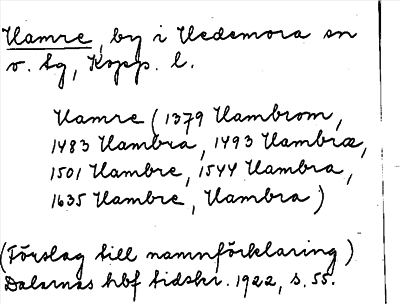 Hamre, by i Hedemora sn
o. tg, Kopp. l.
Hamre (1379 Hambrom,
1483 Hambra, 1493 Hambræ,
1501 Hambre, 1544 Hambra,
1635 Hambre, Hambra)
(Förslag till namnförklaring)
Dalarnas hbf tidskr. 1922, s. 55.